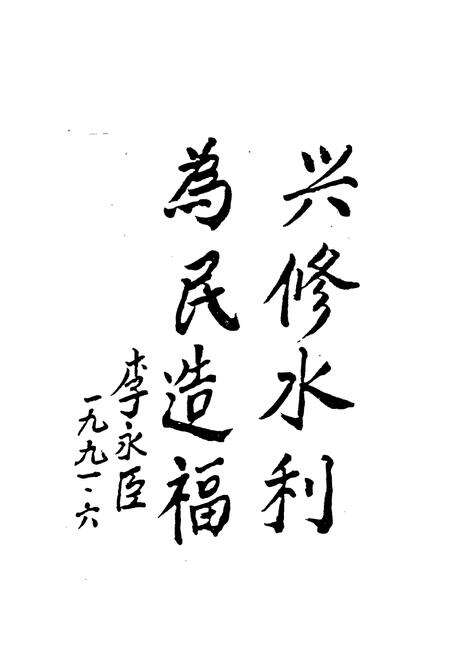 兴修水利
為民造福
李永臣
一九九一·六